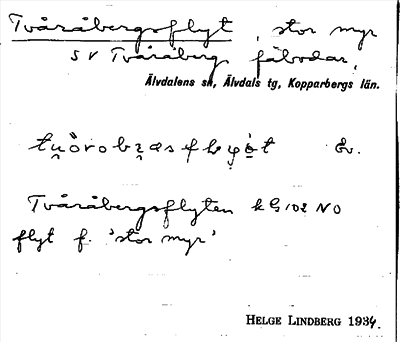 Tvåråbergsflyt, stor myr
SV Tvåråberg fäbodar,
Älvdalens sn, Älvdals tg, Kopparbergs län.
Öv.
Tvåråbergsflyten kG 102 NO
flyt f. 'stor myr'
HELGE LINDBERG 1934.